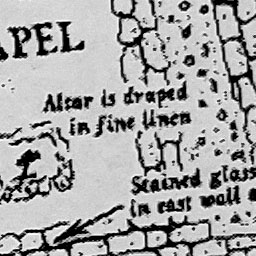 APEL
Altar is draped
in fine linen
Stained glass
in east wall